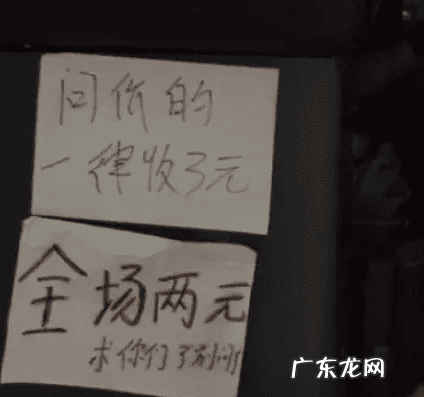 问价的
一律收3元
全场两元
求你们了别问了
广东龙网